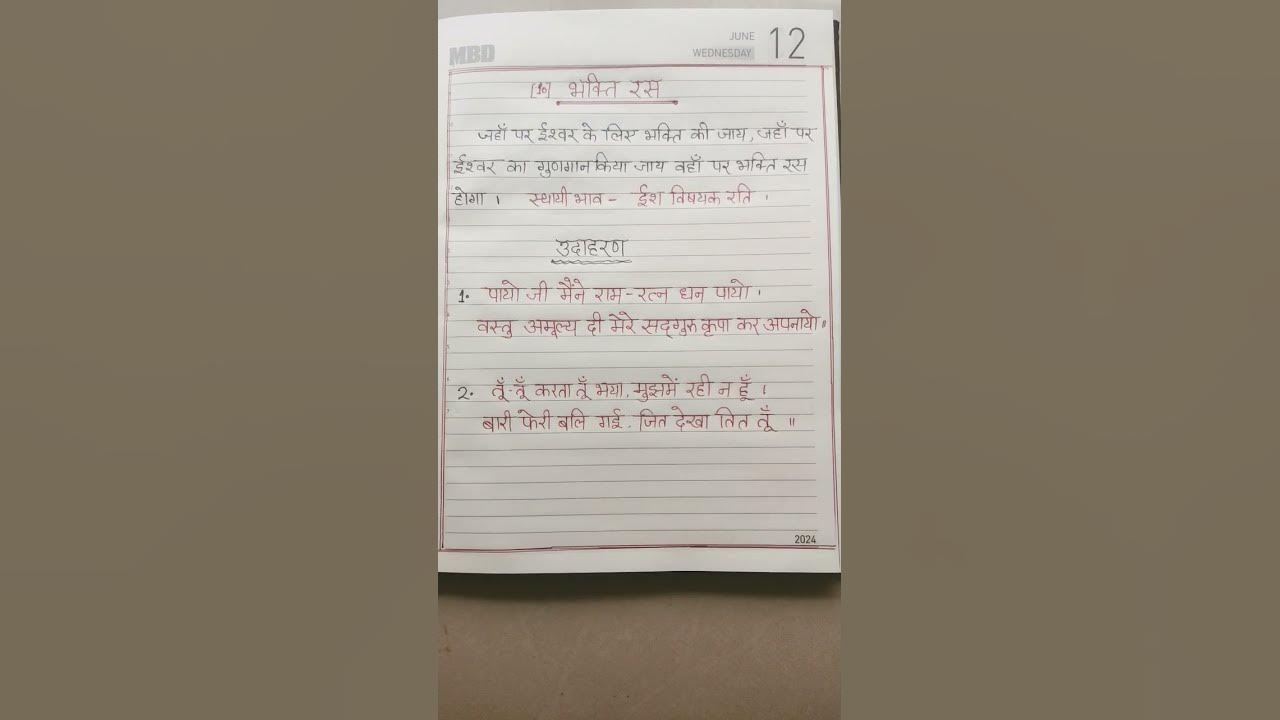 MBD
JUNE
WEDNESDAY
12
[10] भक्ति रस
जहाँ पर ईश्वर के लिए भक्ति की जाय, जहाँ पर
ईश्वर का गुणगान किया जाय वहाँ पर भक्ति रस
होगा । स्थायी भाव - ईश विषयक रति ।
उदाहरण
1. पायो जी मैंने राम-रत्न धन पायो ।
वस्तु अमूल्य दी मेरे सद्गुरु कृपा कर अपनायो॥
2. तूँ-तूँ करता तूँ भया, मुझमें रही न हूँ ।
बारी फेरी बलि गई, जित देखा तित तूँ ॥
2024